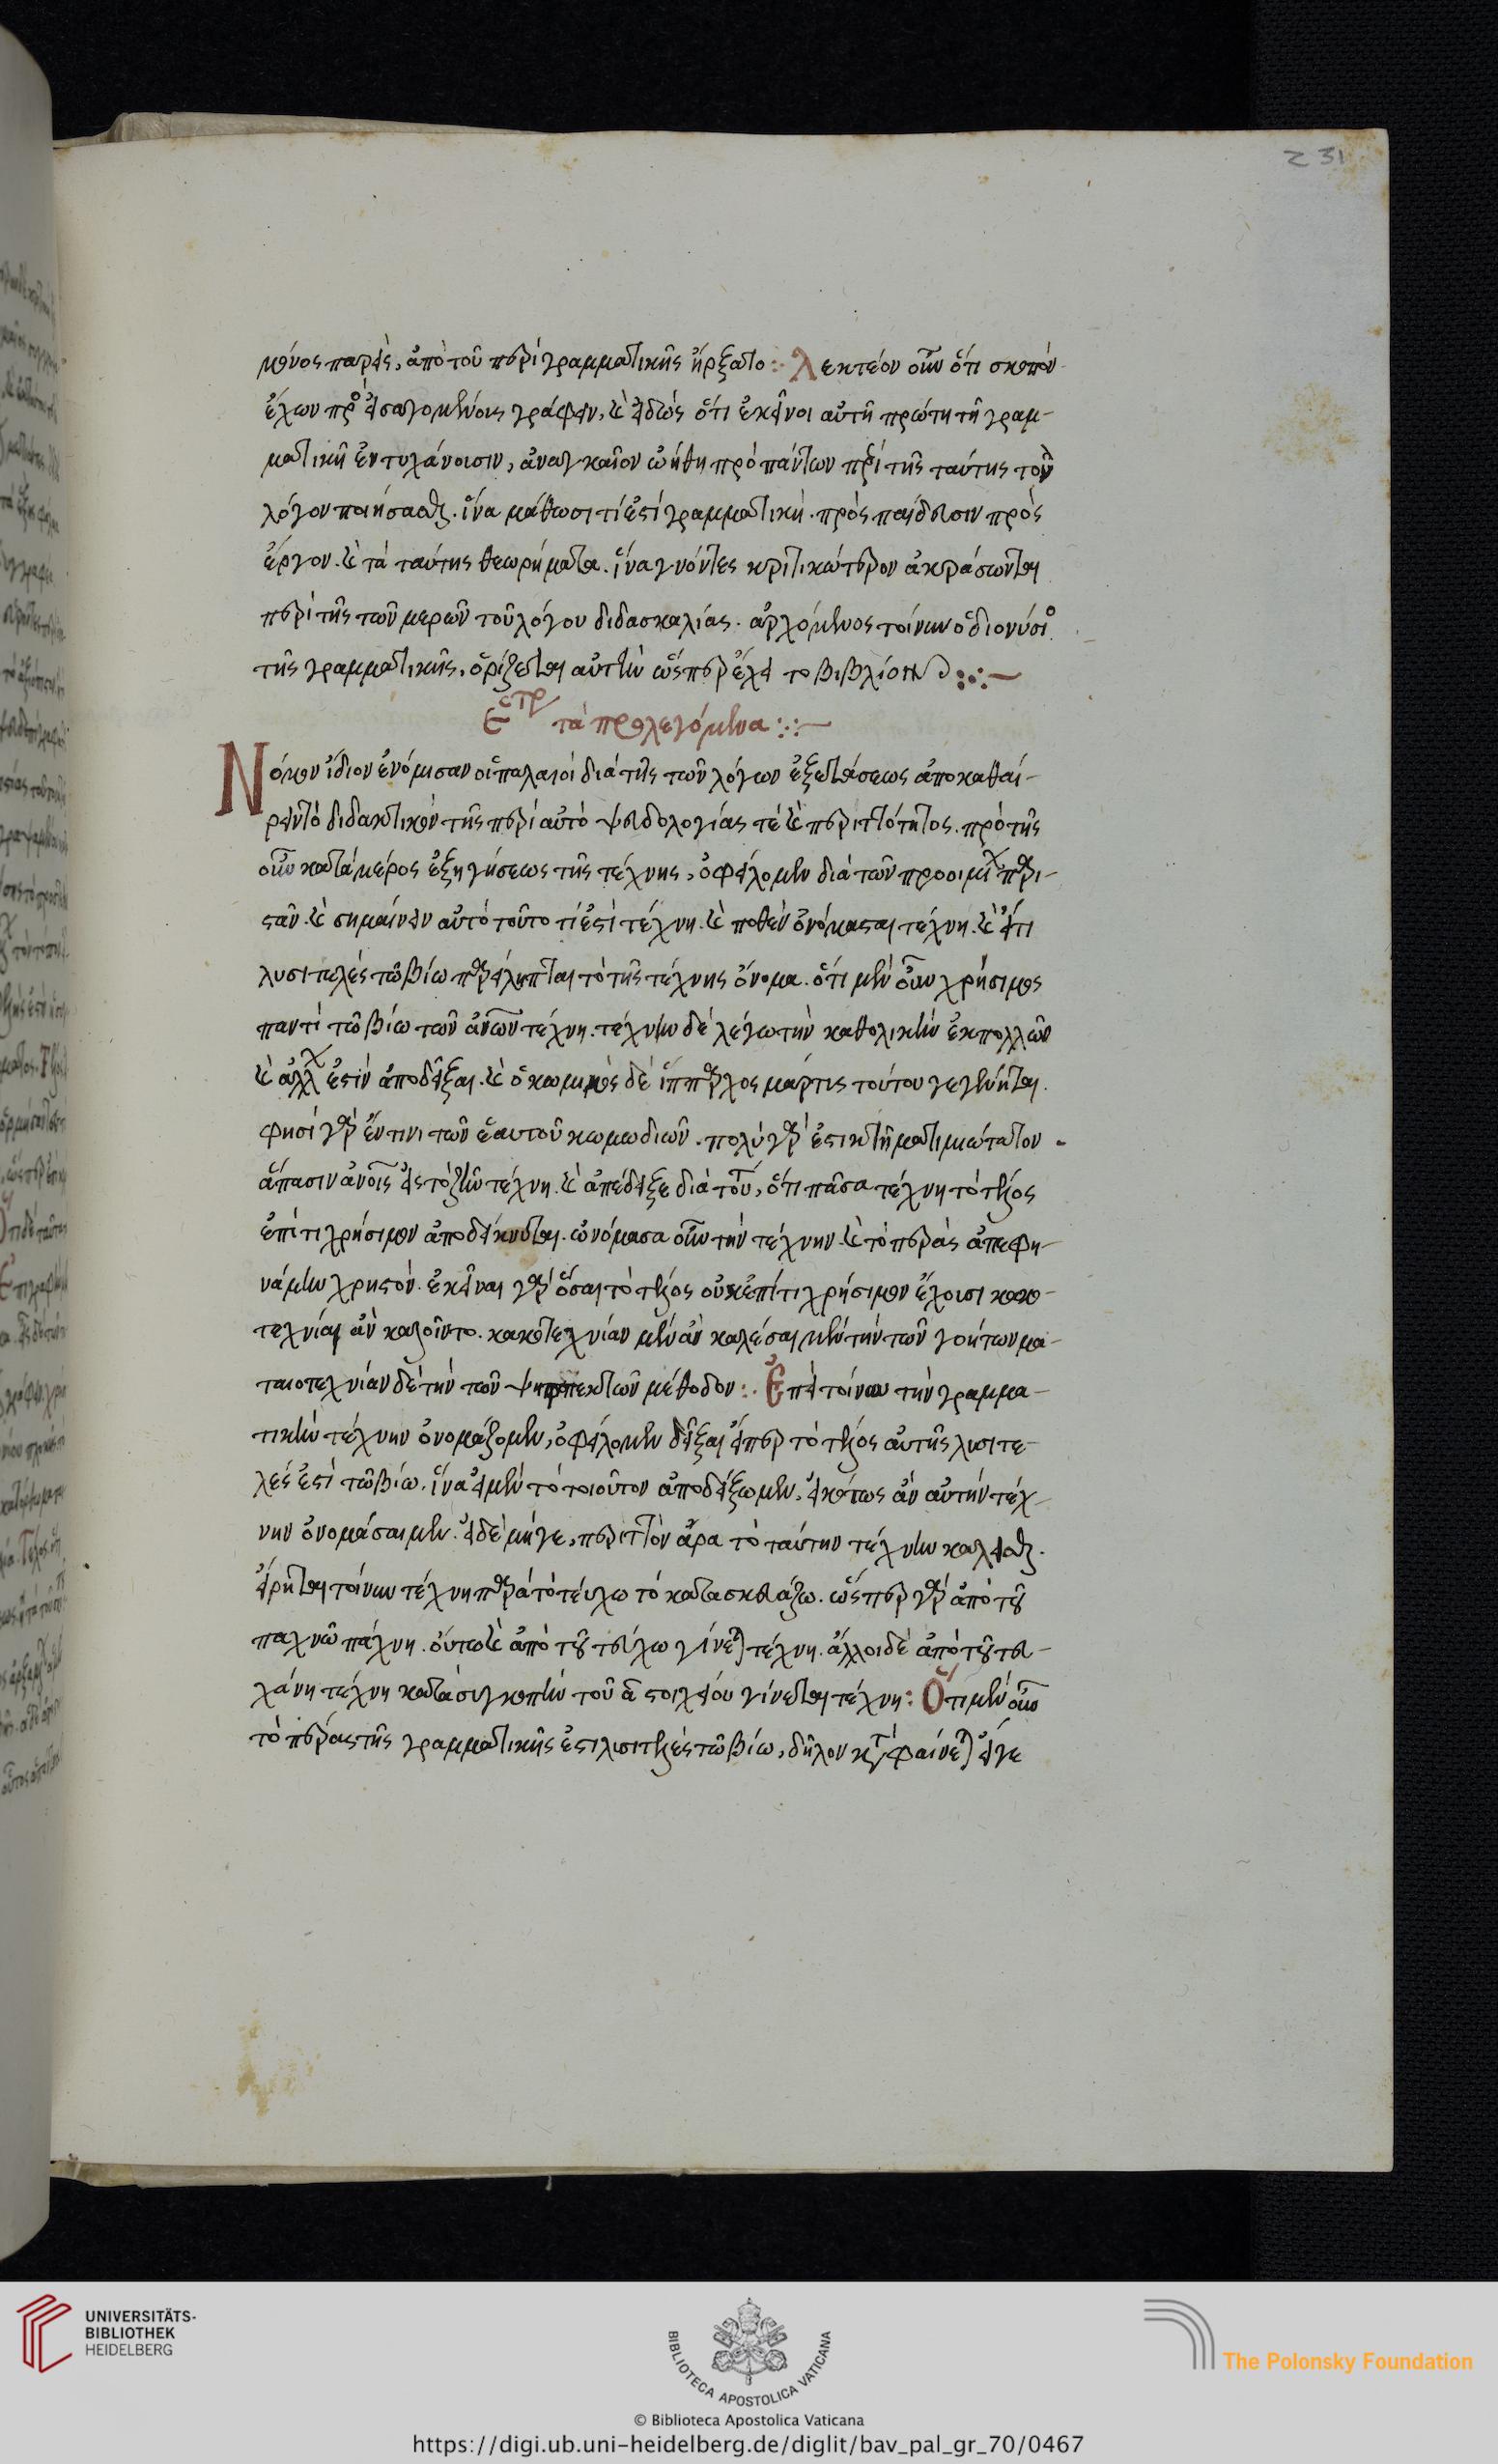 231
μένος παρεὶς, ἀπὸ τοῦ περὶ γραμματικῆς ἤρξατο :· Λεκτέον οὖν ὅτι σκοπὸν
ἔχων πρὸς εἰσαγομένους γράφειν, καὶ εἰδὼς ὅτι ἐκεῖνοι αὐτῆ πρώτη τῆ γραμ-
ματικῆ ἐντυχάνουσιν, ἀναγκαῖον ὠήθη πρὸ πάντων περὶ τῆς ταύτης τὸν
λόγον ποιήσασθαι. ἵνα μάθωσι τί ἐστὶ γραμματικὴ. πρὸς παίδευσιν πρὸς
ἔργον. καὶ τὰ ταύτης θεωρήματα. ἵνα γνόντες κριτικώτερον ἀκροάσωνται
περὶ τῆς τῶν μερῶν τοῦ λόγου διδασκαλίας. ἀρχόμενος τοίνυν ὁ διονύσιος
τῆς γραμματικῆς, ὁρίζεται αὐτὴν ὥσπερ ἔχει το βιβλίον :·:—
Ετρ τὰ προλεγόμενα :·:—
Νόμον ἴδιον ἐνόμισαν οἱ παλαιοὶ διὰ τῆς τῶν λόγων ἐξετάσεως ἀποκαθαί-
ρειν τὸ διδακτικὸν τῆς περὶ αὐτὸ ψευδολογίας τὲ καὶ περιττότητος. πρὸ τῆς
οὖν κατὰ μέρος ἐξηγήσεως τῆς τέχνης, ὀφείλομεν διὰ τῶν προοιμίων παρι-
στᾶν. καὶ σημαίνειν αὐτὸ τοῦτο τί ἐστὶ τέχνη. καὶ πόθεν ὀνόμασται τέχνη. καὶ εἴ τι
λυσιτελὲς τῶ βίω παρείληπται τὸ τῆς τέχνης ὄνομα. ὅτι μὲν οὖν χρήσιμος
παντὶ τῶ βίω τῶν ἀνων τέχνη. τέχνην δὲ λέγω τὴν καθολικὴν ἐκ πολλῶν
καὶ ἄλλων ἐστὶν ἀποδεῖξαι. καὶ ὁ κωμικὸς δὲ ἵππαρχος μάρτις τούτου γεγένηται.
φησὶ γὰρ ἔν τινι τῶν ἑαυτοῦ κωμωδιῶν. πολὺ γὰρ ἐστι κτῆμα τιμιώτατον
ἅπασιν ἀνοις εἰς τὸ ζῆν τέχνη. καὶ ἀπέδειξε διὰ τούτου, ὅτι πᾶσα τέχνη τὸ τέλος
ἐπί τι χρήσιμον ἀποδείκνυται. ὠνόμασα οὖν τὴν τέχνην. καὶ τὸ πέρας ἀπεφη-
νάμην χρηστόν. ἐκεῖναι γὰρ ὅσαι τὸ τέλος οὐκ ἐπί τι χρήσιμον ἔχουσι κακο-
τεχνίαι ἂν καλοῖντο. κακοτεχνίαν μὲν ἂν καλέσαιμεν τὴν τῶν γοήτων μα-
ταιοτεχνίαν δὲ τὴν τῶν ψηφοπεκτῶν μέθοδον :· Ἐπεὶ τοίνυν τὴν γραμμα-
τικὴν τέχνην ὀνομάζομεν, ὀφείλομεν δεῖξαι εἴπερ τὸ τέλος αὐτῆς λυσιτε-
λές ἐστὶ τῶ βίω. ἵνα εἰ μὲν τὸ τοιοῦτον ἀποδείξωμεν, εἰκότως ἂν αὐτὴν τέχ-
νην ὀνομάσαιμεν. εἰ δὲ μήγε, περιττὸν ἄρα τὸ ταύτην τέχνην καλεῖσθαι.
εἴρηται τοίνυν τέχνη παρὰ τὸ τεύχω τὸ κατασκευάζω. ὥσπερ γὰρ ἀπὸ τοῦ
παχνῶ πάχνη. οὕτω καὶ ἀπὸ τοῦ τεύχω γίνεται τέχνη. ἄλλοι δὲ ἀπὸ τοῦ τευ-
χάνη τέχνη κατὰ συγκοπὴν τοῦ α στοιχείου γίνεται τέχνη : Ὅτι μὲν οὖν
τὸ πέρας τῆς γραμματικῆς ἐστι λυσιτελὲς τῶ βίω, δῆλον κα φαίνεται εἴγε
UNIVERSITÄTS-
BIBLIOTHEK
HEIDELBERG
BIBLIOTECA APOSTOLICA VATICANA
The Polonsky Foundation
© Biblioteca Apostolica Vaticana
https://digi.ub.uni-heidelberg.de/diglit/bav_pal_gr_70/0467